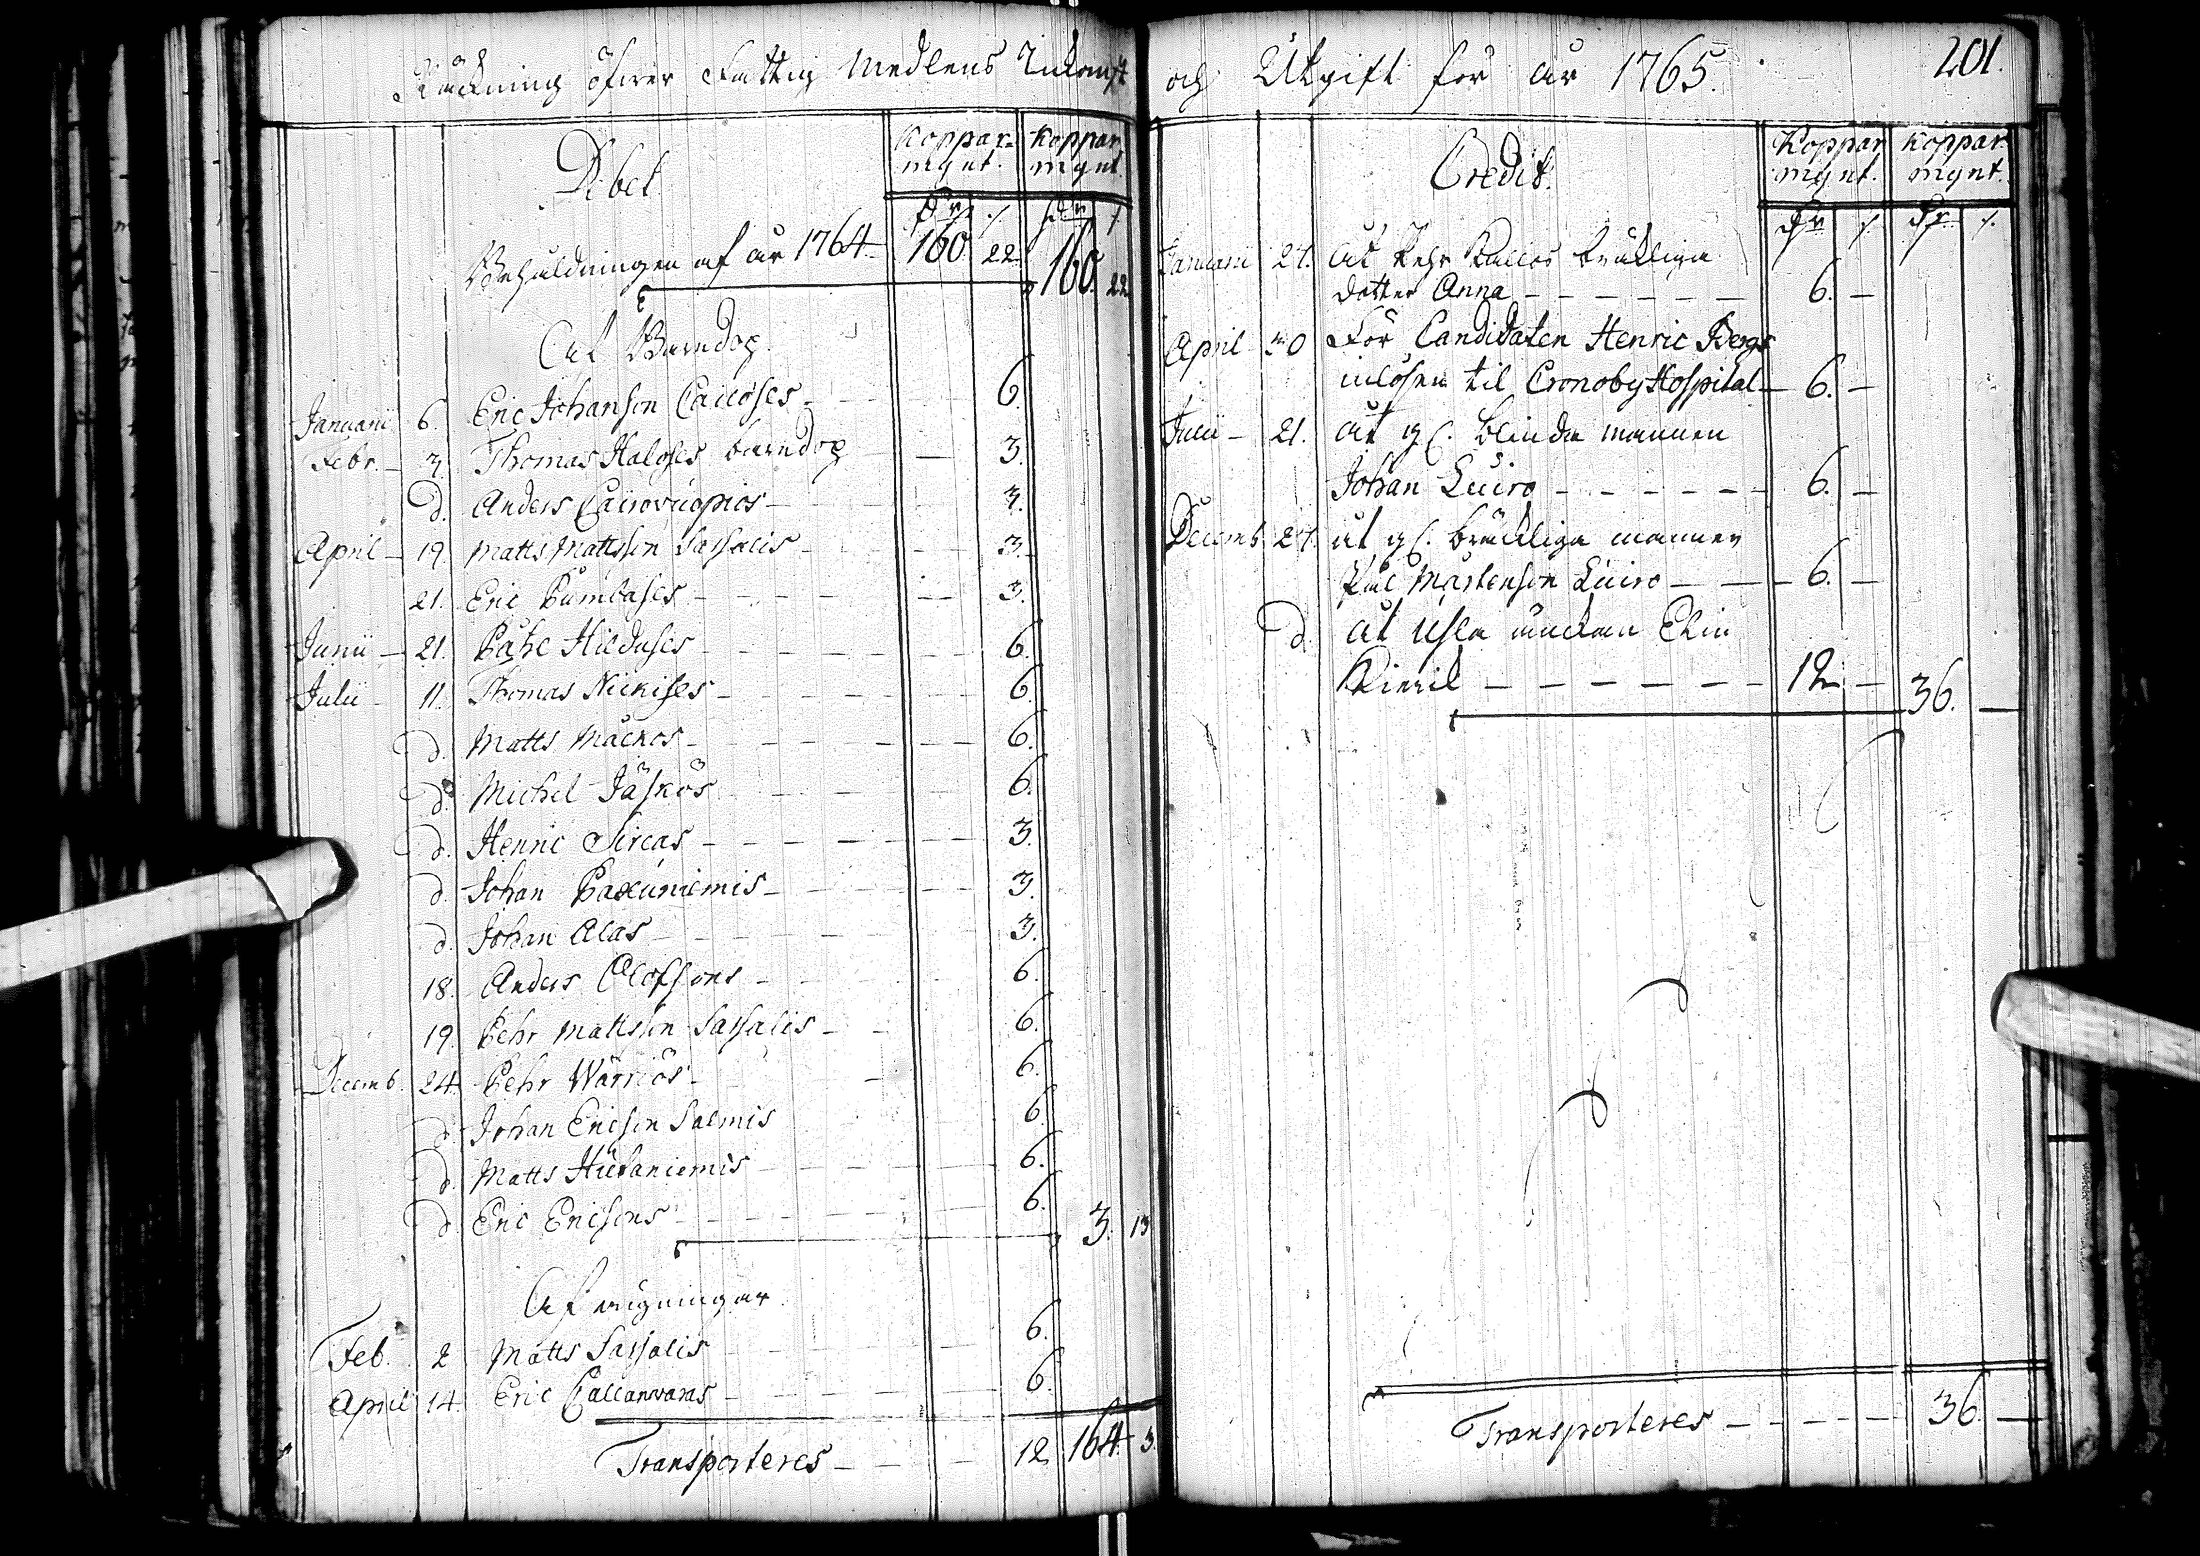 Räkning öfwer Fattig Medlens Inkomst
Debet
Koppar-
mynt.
Koppar
mynt.
Behåldningen af år 1764 160. 22. 160. 22
Af Barndop
Januarii 6. Eric Johanson 6.
Febr. 3. Thomas Haloses barndop 3.
d. Anders 3.
April 19. Matts Mattsson Sassalis 3.
21. Eric 3.
Junii 21. Påhl Hildusis 6.
Julii 11. Thomas Niikises 6.
d. Matts 6.
d. Michel Jäskös 6.
d. Henric Sircas 3.
d. Johan 3.
d. Johan Alas 3.
18. Anders Olofsons 6.
19. Pehr Mattsson Sassalis 6.
Decemb. 24. Pehr Wärriös 6.
d. Johan Ericson Salmis 6.
d. Matts Hietaniemis 6.
d. Eric Ericsons 6.
3. 13
Af wigningar
Feb. 2 Matts Sassalis 6.
April 14. Eric Callanvaras 6.
Transporteres 12 164. 3.
och Utgift för år 1765. 201.
Credit.
Koppar
mynt.
Koppar
mynt.
Januarii 27. åt Pehr bräckliga
dotter Anna 6. —
April 30 För Candidaten Henric Bergs
inlösen til Cronoby Hospital 6. —
Julii 21. åt gl. blinda mannen
Johan Luiro 6. —
Decemb. 27. åt gl. bräckliga mannen
Pål Mårtenson Luiro 6. —
d. åt usla änckan Elin
12 — 36. —
Transporteres 36. —